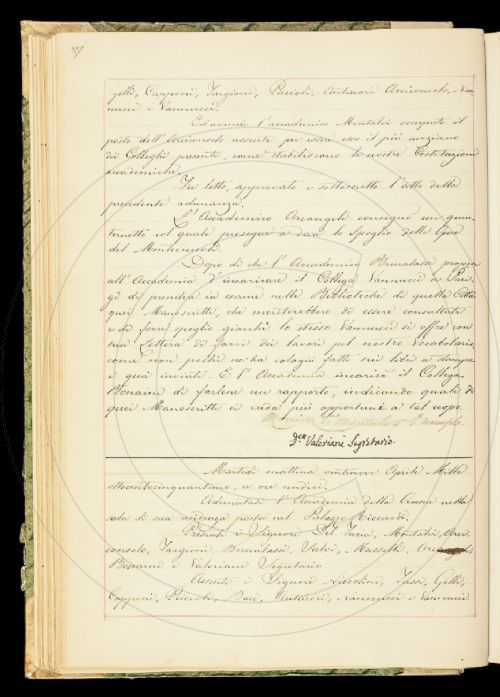 Gelli, Capponi, Targioni, Piccioli, Antinori Arciconsolo, Nan
nucci e Vannucci.
Ed avendo l'accademico Montalvi occupato il
posto dell'Arciconsolo assente per essere esso il più anziano
dei Colleghi presenti, come stabiliscono le nostre Costituzioni
accademiche,
Fu letto, approvato e sottoscritto l'atto della
precedente adunanza.
L'Accademico Arcangeli consegnò un quin
ternetto col quale prosegue a dare lo spoglio delle Opere
del Montecuccoli.
Dopo di che l'Accademico Brucalassi propose
all'Accademia d'incaricare il Collega Vannucci a Pari
gi di prendere in esame nelle Biblioteche di quella Città
quei Manoscritti, che meriterebbero di essere consultati
e di farne spoglio giacchè lo stesso Vannucci si offre con
sua Lettera di farvi dei lavori pel nostro Vocabolario,
come non pochi ne ha colagiù fatti sui libri a stampa
e quà inviati. E l'Accademia incaricò il Collega
Bonaini di fartene un rapporto, indicando quali di
quei Manoscritti ei creda più opportuni a tal uopo.
Valeriani Segretario.
Martedì mattina ventinove Aprile Mille
ottocentocinquantuno, a ore undici.
Adunatasi l'Accademia della Crusca nella
sala di sua residenza posta nel Palazzo Riccardi.
Presenti i Signori Del Furia, Montalvi, Arci
consolo, Targioni, Brucalassi, Salvi, Masselli,
Bonaini e Valeriani Segretario
Assenti i Signori Niccolini, Gelli,
Capponi, Piccioli, Nannucci e Vannucci.